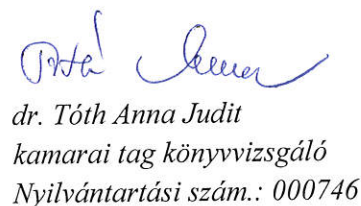 dr. Tóth Anna Judit
kamarai tag könyvvizsgáló
Nyilvántartási szám.: 000746